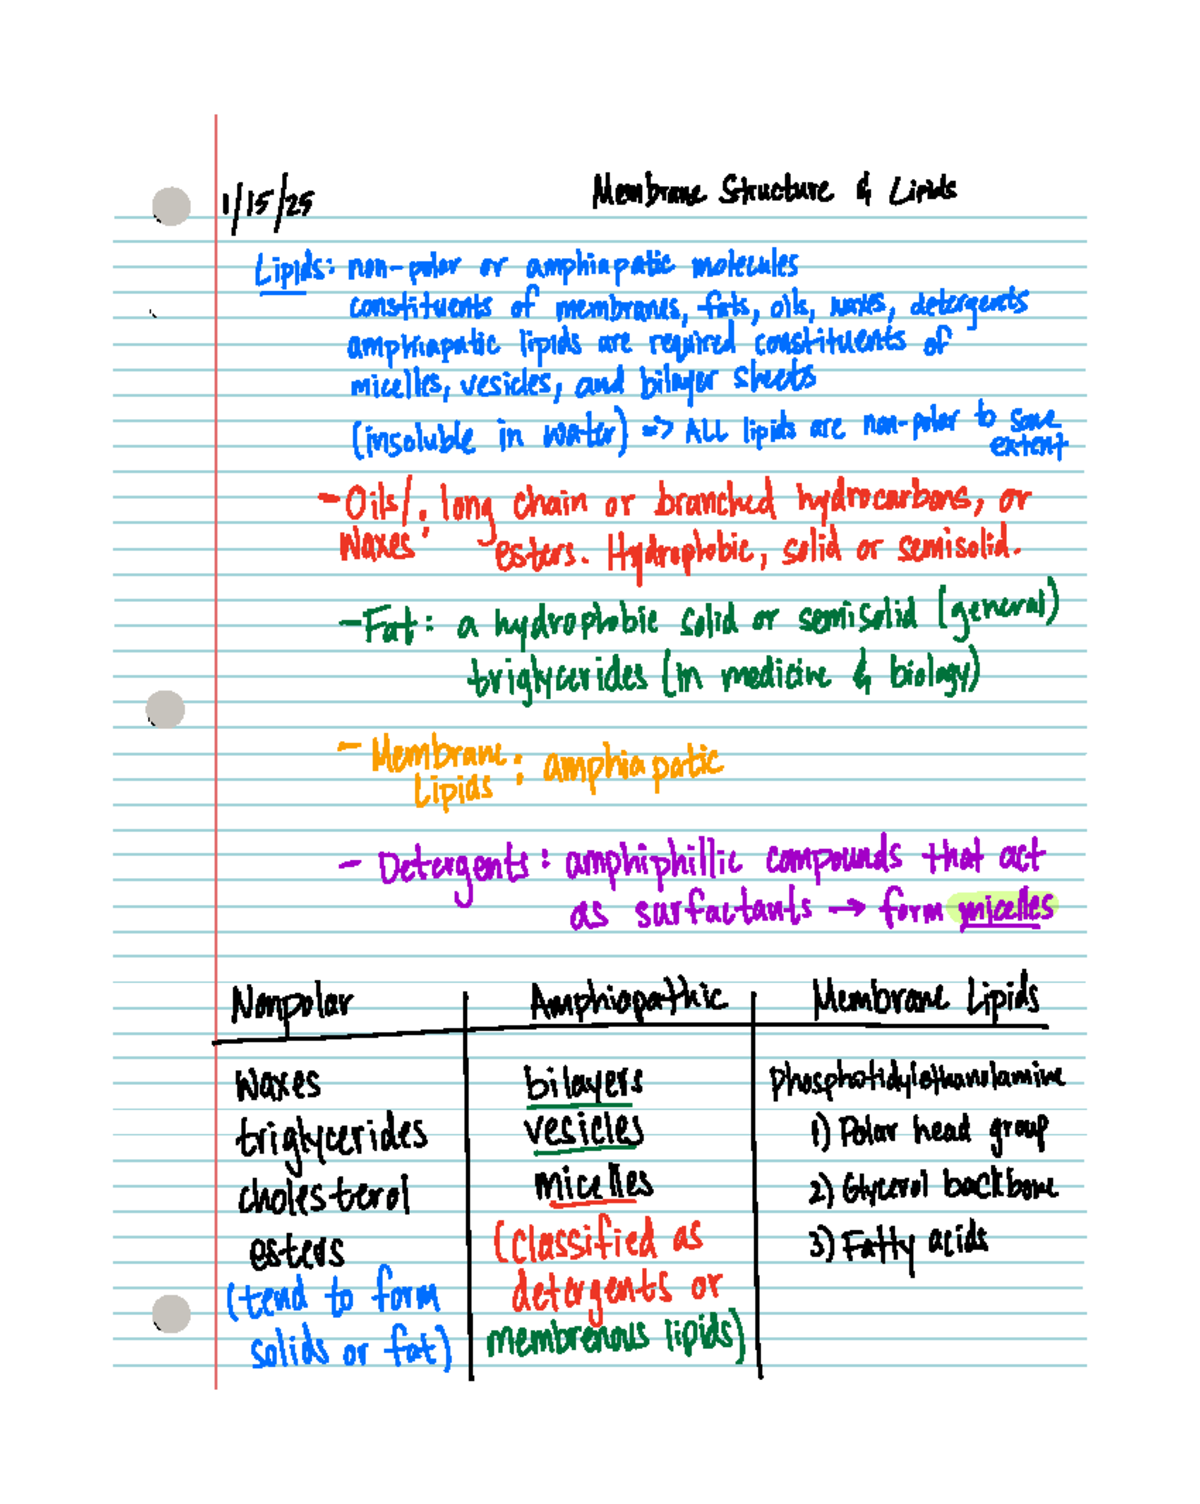 1/15/25 Membrane Structure & Lipids
Lipids: non-polar or amphiapatic molecules
constituents of membranes, fats, oils, waxes, detergents
amphiapatic lipids are required constituents of
micelles, vesicles, and bilayer sheets
(insoluble in water) => ALL lipids are non-polar to some
extent
- Oils/ : long chain or branched hydrocarbons, or
Waxes esters. Hydrophobic, solid or semisolid.
- Fat: a hydrophobic solid or semisolid (general)
triglycerides (in medicine & biology)
- Membrane : amphiapatic
Lipids
- Detergents: amphiphillic compounds that act
as surfactants → form micelles
Nonpolar Amphiopathic Membrane Lipids
Waxes bilayers Phosphotidylethanolamine
triglycerides vesicles 1) Polar head group
cholesterol micelles 2) Glycerol backbone
esters (classified as 3) Fatty acids
(tend to form detergents or
solids or fat) membrenous lipids)